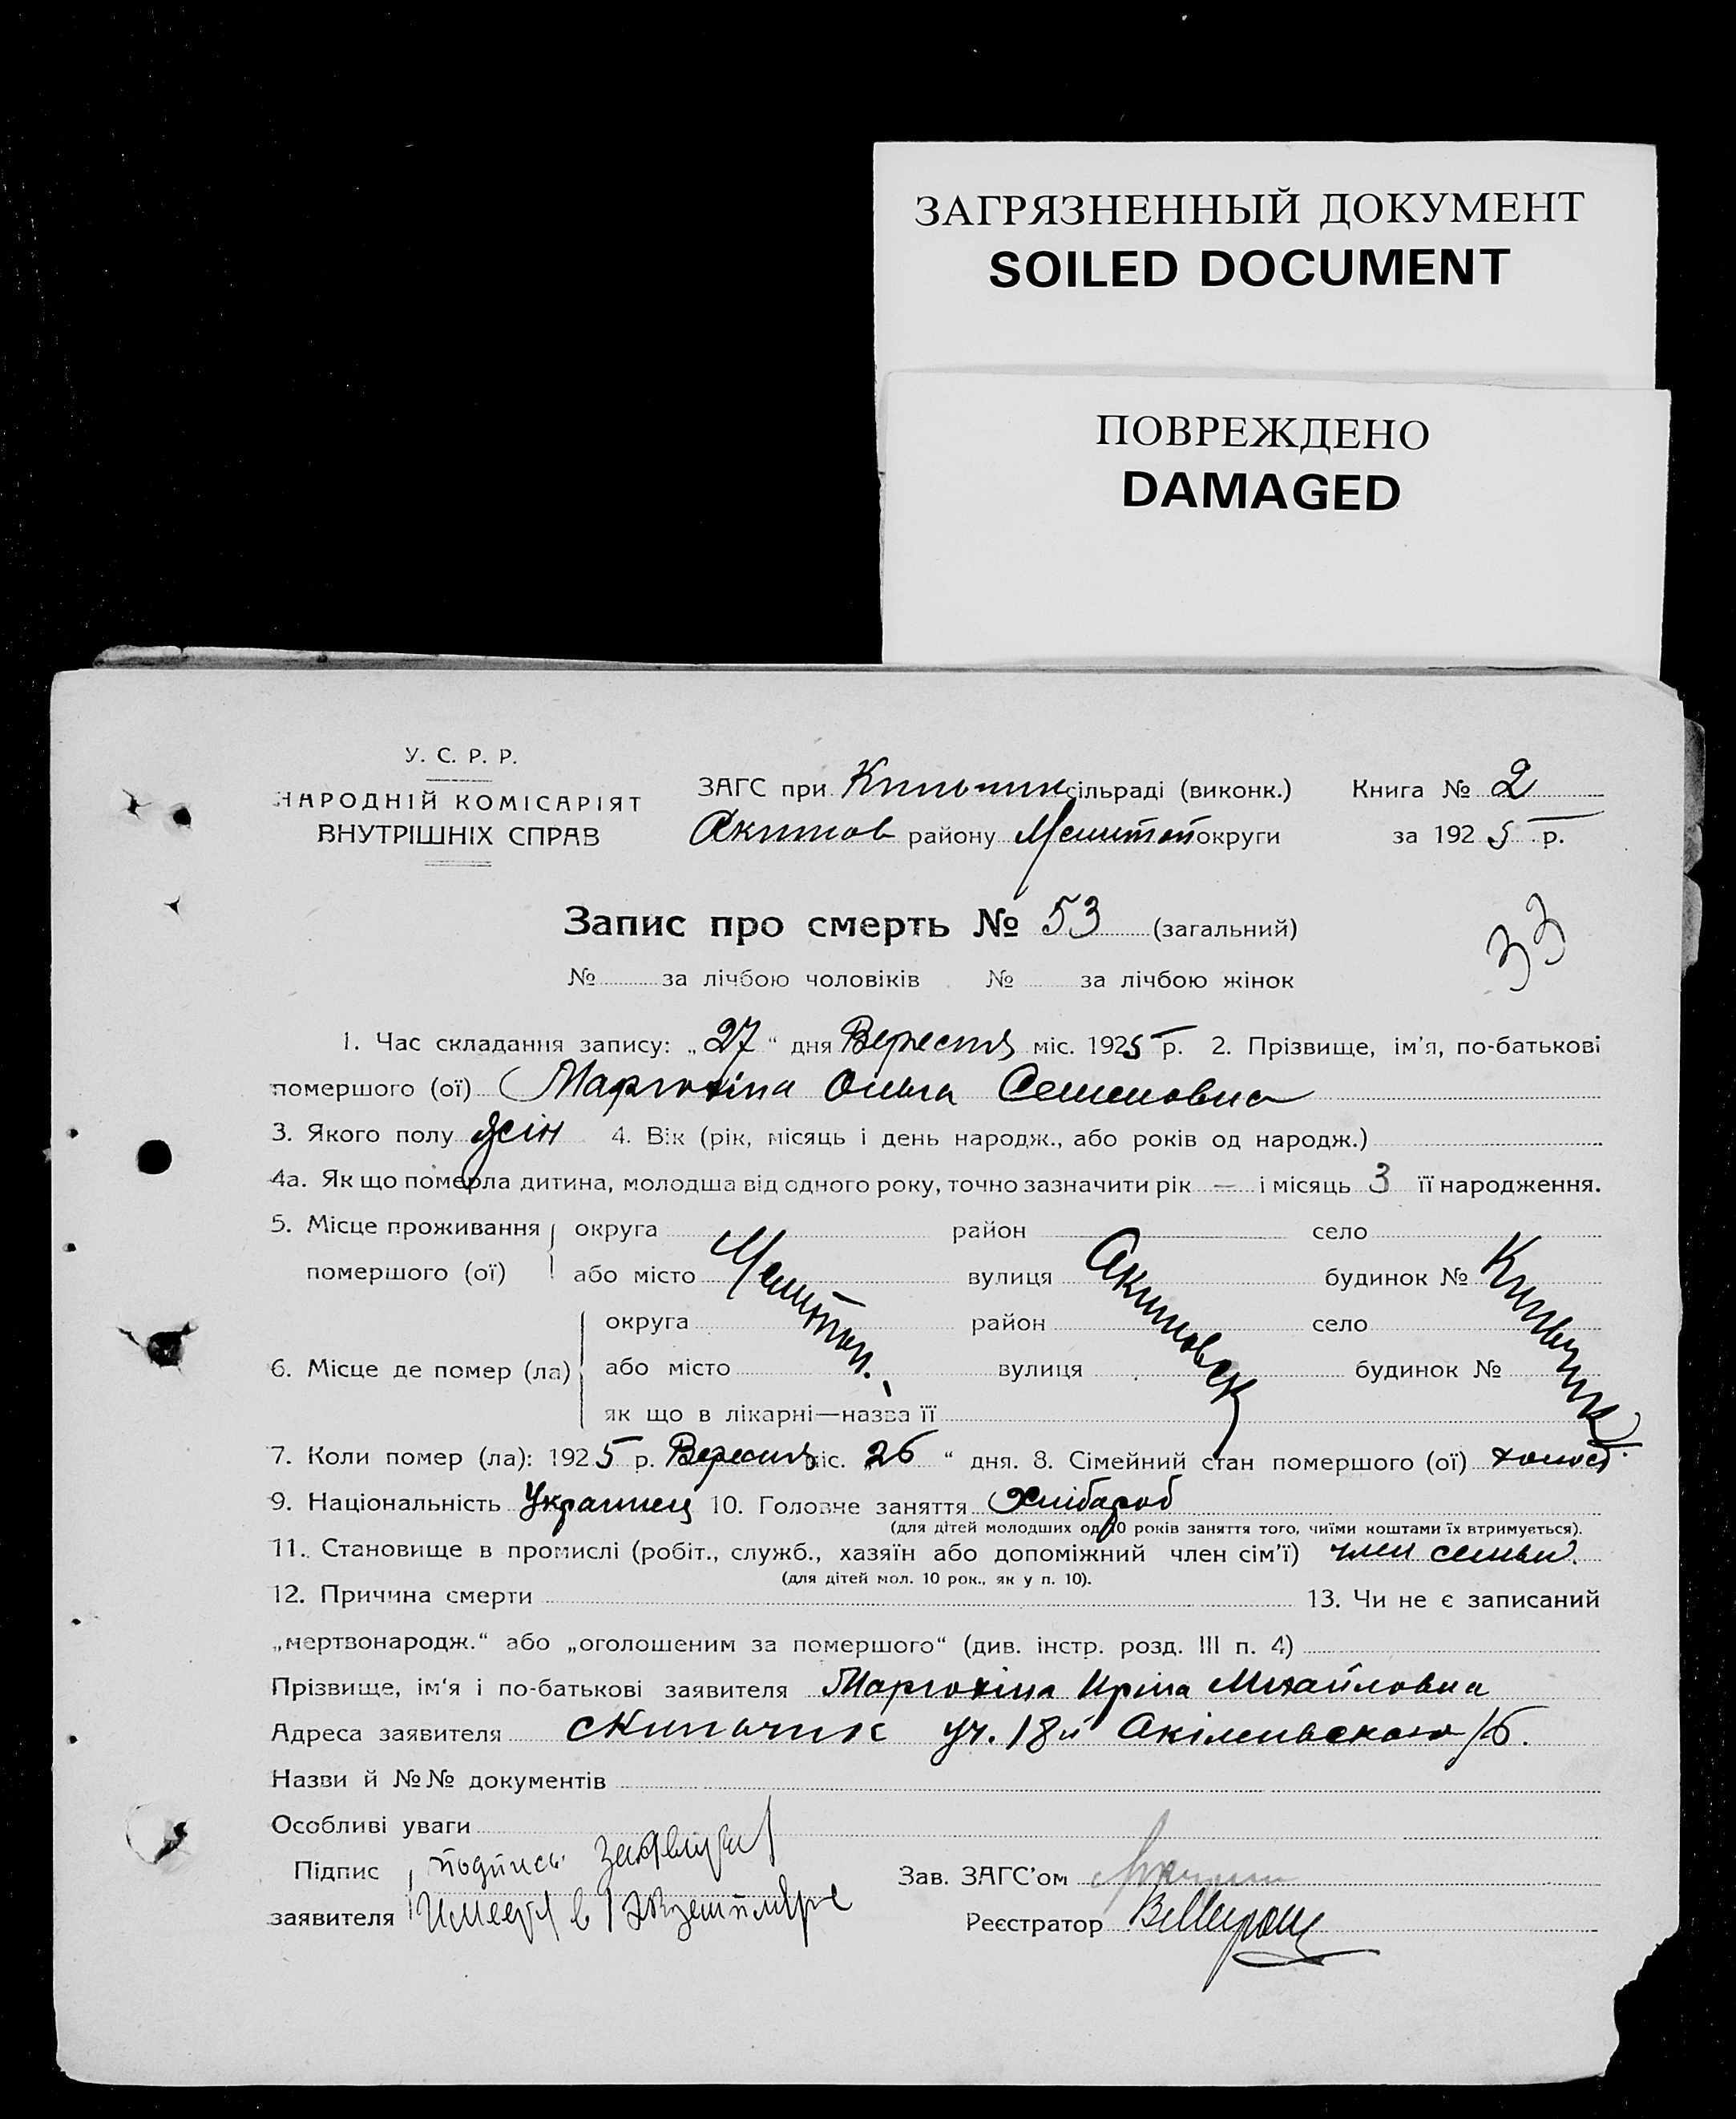 ЗАГРЯЗНЕННЫЙ ДОКУМЕНТ
SOILED DOCUMENT
ПОВРЕЖДЕНО
DAMAGED
У. С. Р. Р.
НАРОДНІЙ КОМІСАРІЯТ
ВНУТРІШНІХ СПРАВ
ЗАГС при Кильчик сільраді (виконк.)
Акимов району Мелитоп округи
Книга № 2
за 1925 р.
Запис про смерть № 53 (загальний)
33
№ за лічбою чоловіків № за лічбою жінок
1. Час складання запису: „27“ дня Вересня міс. 1925 р. 2. Прізвище, ім'я, по-батькові
помершого (ої) Маргохіна Ольга Семеновна
3. Якого полу жін 4. Вік (рік, місяць і день народж., або років од народж.)
4а. Як що померла дитина, молодша від одного року, точно зазначити рік — і місяць 3 її народження.
5. Місце проживання помершого (ої) округа район село
або місто Мелитоп. вулиця Акимовск будинок № Кильчик
6. Місце де помер (ла) округа район село
або місто вулиця будинок №
як що в лікарні—назва її
7. Коли помер (ла): 1925 р. Вересня міс. 26 “ дня. 8. Сімейний стан помершого (ої) холост.
9. Національність Украинец 10. Головне заняття Хлібароб
(для дітей молодших од 10 років заняття того, чиїми коштами їх втримується).
11. Становище в промислі (робіт., служб., хазяїн або допоміжний член сім'ї) член семьи.
(для дітей мол. 10 рок., як у п. 10).
12. Причина смерти 13. Чи не є записаний
„мертвонародж.“ або „оголошеним за помершого“ (див. інстр. розд. III п. 4)
Прізвище, ім'я і по-батькові заявителя Маргохіна Ирина Михайловна
Адреса заявителя с Кильчик уч. 18й
Назви й №№ документів
Особливі уваги
Підпис заявителя подпись заявителя
имеется в 1 экземпляре
Зав. ЗАГС'ом
Реєстратор